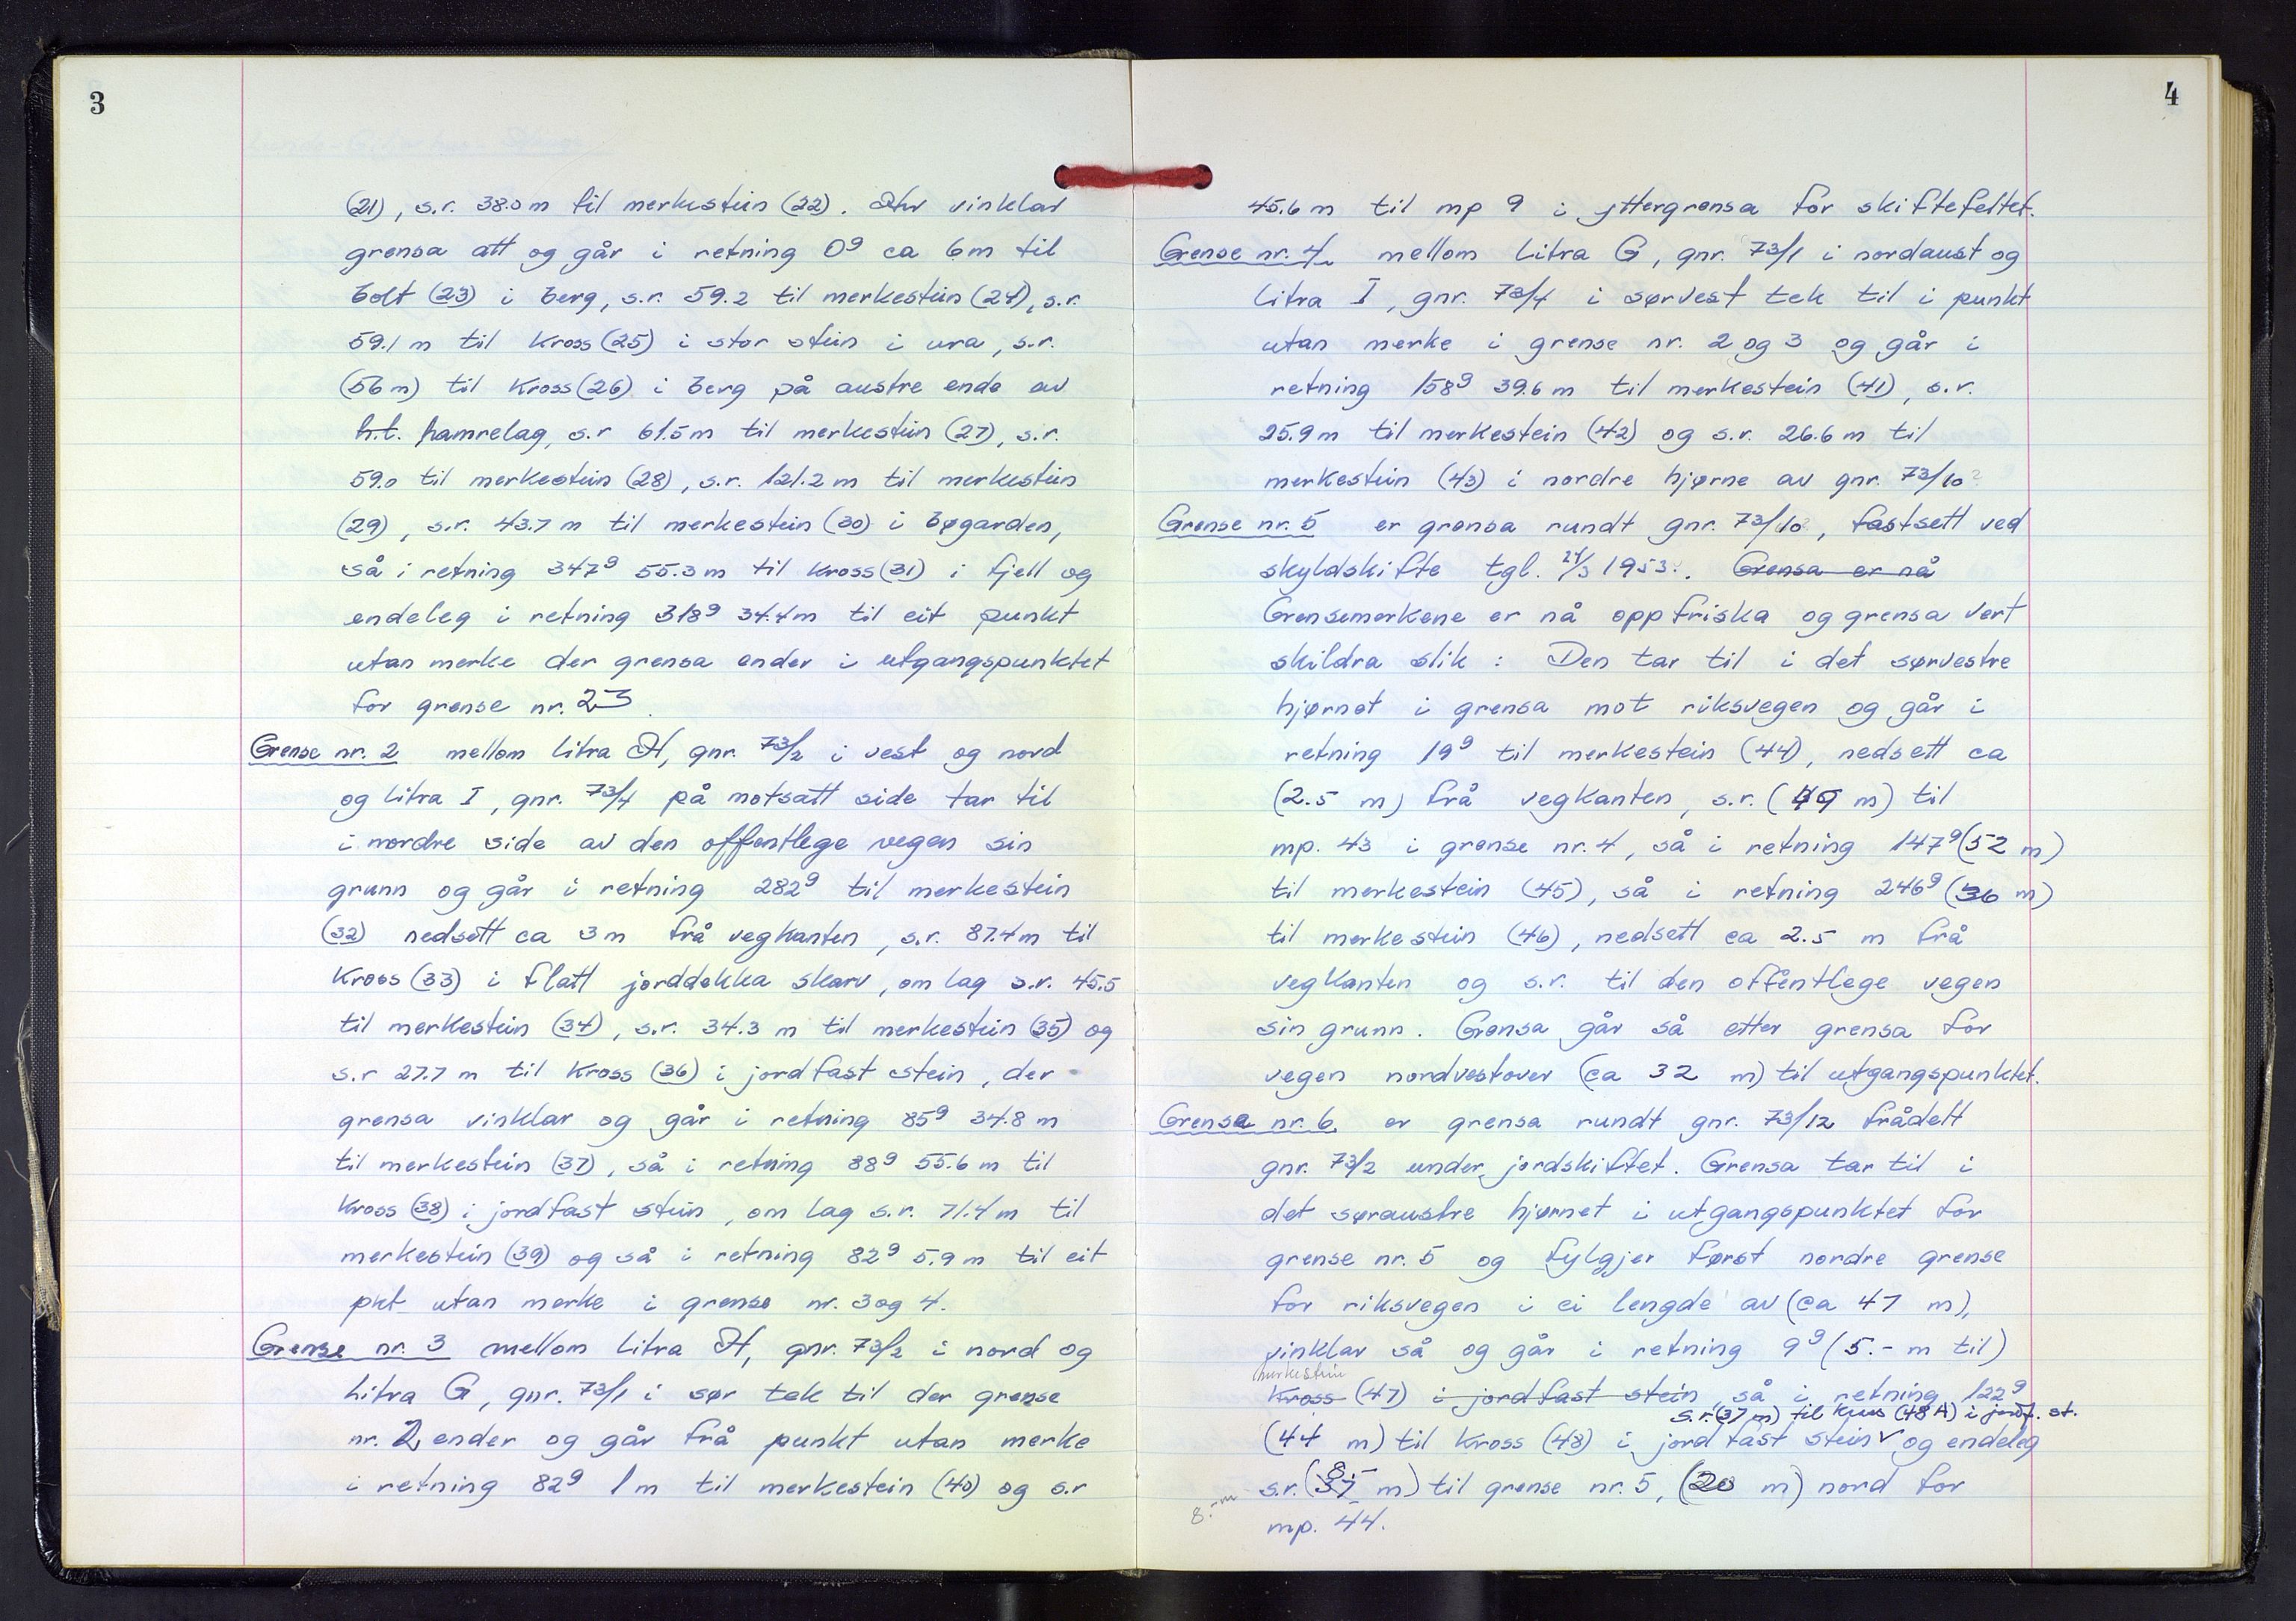 3
(21), s.r. 38.0 m til merkestein (22). Her vinklar
grensa att og går i retning 0g ca 6m til
bolt (23) i berg, s.r. 59.2 til merkestein (24), s.r.
59.1 m til kross (25) i stor stein i ura, s.r.
(56 m) til kross (26) i berg på austre ende av
h.t. hamrelag, s.r 61.5 m til merkestein (27), s.r.
59.0 til merkestein (28), s.r. 121.2 m til merkestein
(29), s.r. 43.7 m til merkestein (30) i bøgarden,
så i retning 347g 55.3 m til kross (31) i fjell og
endeleg i retning 318g 34.4 m til eit punkt
utan merke der grensa ender i utgangspunktet
for grense nr. 23.
Grense nr. 2 mellom litra H, gnr. 73/2 i vest og nord
og litra I, gnr. 73/4 på motsatt side tar til
i nordre side av den offentlege vegen sin
grunn og går i retning 282g til merkestein
(32) nedsett ca 3 m frå vegkanten, s.r. 87.4 m til
kross (33) i flatt jorddekka skarv, om lag s.r. 45.5
til merkestein (34), s.r. 34.3 m til merkestein (35) og
s.r 27.7 m til kross (36) i jordfast stein, der
grensa vinklar og går i retning 85g 34.8 m
til merkestein (37), så i retning 88g 55.6 m til
kross (38) i jordfast stein, om lag s.r. 71.4 m til
merkestein (39) og så i retning 82g 5.9 m til eit
pkt utan merke i grense nr. 3 og 4.
Grense nr. 3 mellom litra H, gnr. 73/2 i nord og
litra G, gnr. 73/1 i sør tek til der grense
nr. 2 ender og går frå punkt utan merke
i retning 82g 1 m til merkestein (40) og s.r
4
45.6 m til mp 9 i yttergrensa for skiftefeltet.
Grense nr. 4 mellom litra G, gnr. 73/1 i nordaust og
litra I, gnr. 73/4 i sørvest tek til i punkt
utan merke i grense nr. 2 og 3 og går i
retning 158g 39.6 m til merkestein (41), s.r.
25.9 m til merkestein (42) og s.r. 26.6 m til
merkestein (43) i nordre hjørne av gnr. 73/10
Grense nr. 5 er grensa rundt gnr. 73/10, fastsett ved
skyldskifte tgl. 24/3 1953. Grensa er nå
Grensemerkene er nå oppfriska og grensa vert
skildra slik : Den tar til i det sørvestre
hjørnet i grensa mot riksvegen og går i
retning 19g til merkestein (44), nedsett ca
(2.5 m) frå vegkanten, s.r. (49 m) til
mp. 43 i grense nr. 4, så i retning 147g (52 m)
til merkestein (45), så i retning 246g (36 m)
til merkestein (46), nedsett ca 2.5 m frå
vegkanten og s.r. til den offentlege vegen
sin grunn. Grensa går så etter grensa for
vegen nordvestover (ca 32 m) til utgangspunktet.
Grense nr. 6 er grensa rundt gnr. 73/12 frådelt
gnr. 73/2 under jordskiftet. Grensa tar til i
det søraustre hjørnet i utgangspunktet for
grense nr. 5 og fylgjer først nordre grense
for riksvegen i ei lengde av (ca 47 m),
vinklar så og går i retning 9g (5.- m til)
merkestein
kross (47) i jordfast stein, så i retning 122g
s.r. (37 m) til kross (48 A) i jordf. st.
(44 m) til kross (48) i jordfast stein og endeleg
8.-
s.r. (37 m) til grense nr. 5, (20 m) nord for
8.-m
mp. 44.